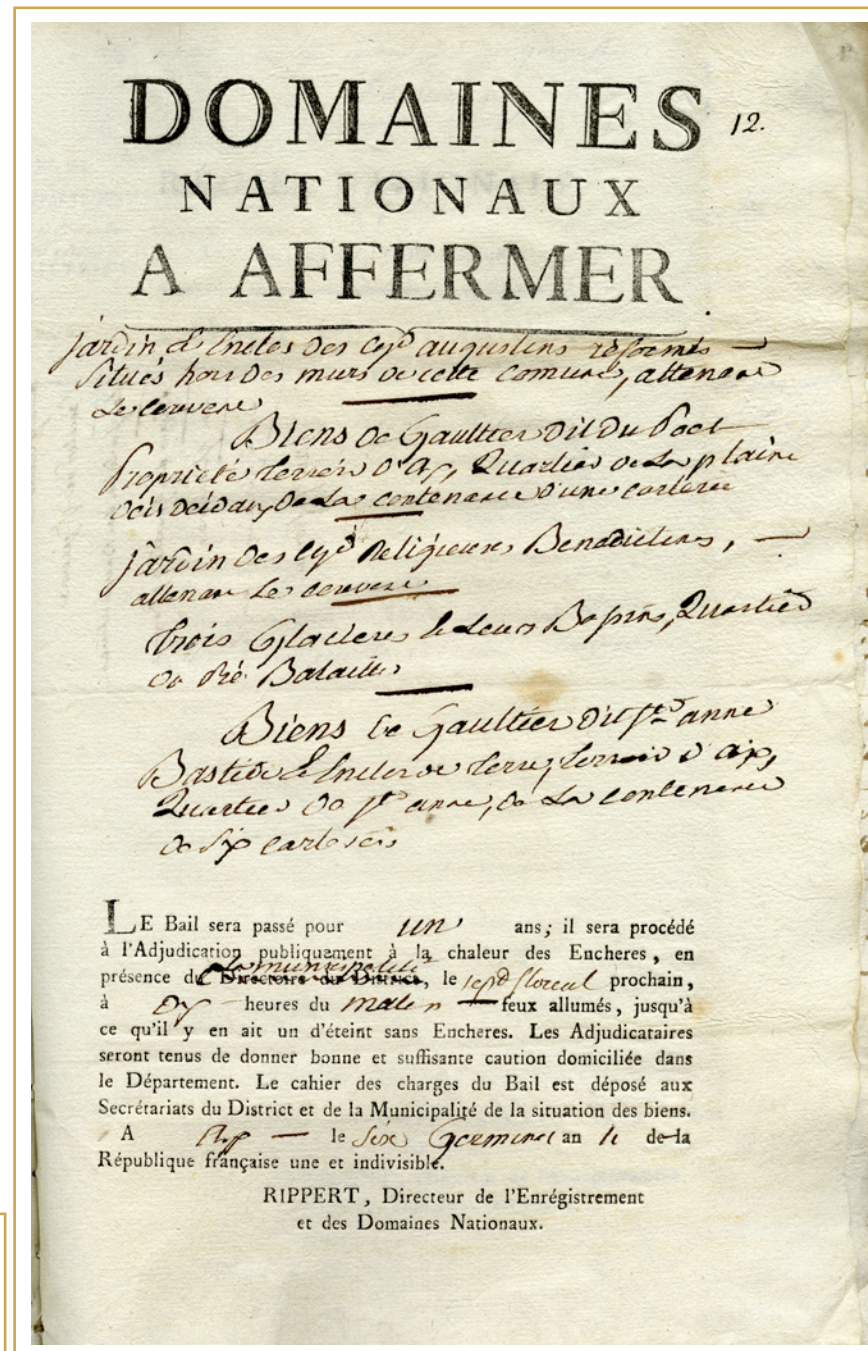 DOMAINES 12.
NATIONAUX
A AFFERMER
jardin & Enclos des cyd. augustins réformés —
situés hors des murs de cette comune, attenant
Le couvent
Biens de Gaultier dit du Poet
Propriété terroir d'aix, Quartier de La plaine
de La contenance d'une carterée
jardin des cyd. Religieuses Benedictines, —
attenant Le couvent
trois Glacieres & Leurs Bassins, Quartier
du Pré Bataille
Biens de Gaultier dit Ste anne
Bastide & Enclos de terre, terroir d'aix,
Quartier de Ste anne, de La contenance
de six carterées
LE Bail sera passé pour un ans; il sera procédé
à l'Adjudication publiquement à la chaleur des Encheres, en
La municipalité
présence du Directoire du District, le sept floreal prochain,
à dix heures du matin — feux allumés, jusqu'à
ce qu'il y en ait un d'éteint sans Encheres. Les Adjudicataires
seront tenus de donner bonne et suffisante caution domiciliée dans
le Département. Le cahier des charges du Bail est déposé aux
Secrétariats du District et de la Municipalité de la situation des biens.
A Aix — le six Germinal an de la
République française une et indivisible.
RIPPERT, Directeur de l'Enrégistrement
et des Domaines Nationaux.